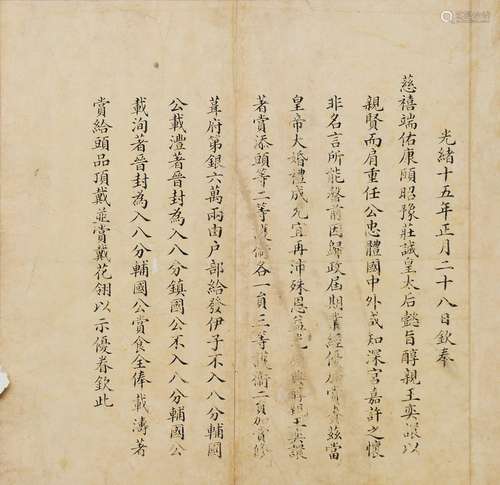 光緒十五年正月二十八日欽奉
慈禧端佑康頤昭豫莊誠皇太后懿旨醇親王奕譞以
親賢而肩重任公忠體國中外咸知深宮嘉許之懷
非名言所能罄前因歸政屆期賞茲當
皇帝大婚禮成允宜再沛殊恩醇親王奕譞
著賞添頭等二等護衛各一員三等護衛二員加賞修
葺府第銀六萬兩由戶部給發伊子不入八分輔國
公載灃著晉封為入八分鎮國公不入八分輔國公
載洵著晉封為入八分輔國公賞食全俸載濤著
賞給頭品頂戴並賞戴花翎以示優眷欽此